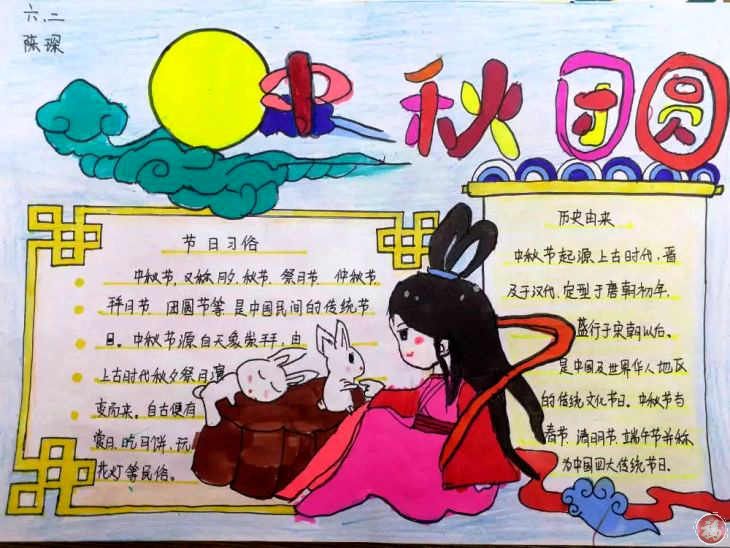 六.二
陈琛
中秋团圆
节日习俗
中秋节,又称月夕、秋节、仲秋节、
拜月节、团圆节等,是中国民间的传统节
日。中秋节源自天象崇拜,由
上古时代秋夕祭月演
变而来。自古便有
赏月、吃月饼、玩
花灯等民俗。
历史由来
中秋节起源上古时代,普
及于汉代,定型于唐朝初年,
盛行于宋朝以后。
是中国及世界华人地区
的传统文化节日。中秋节与
春节、清明节、端午节并称
为中国四大传统节日。
福